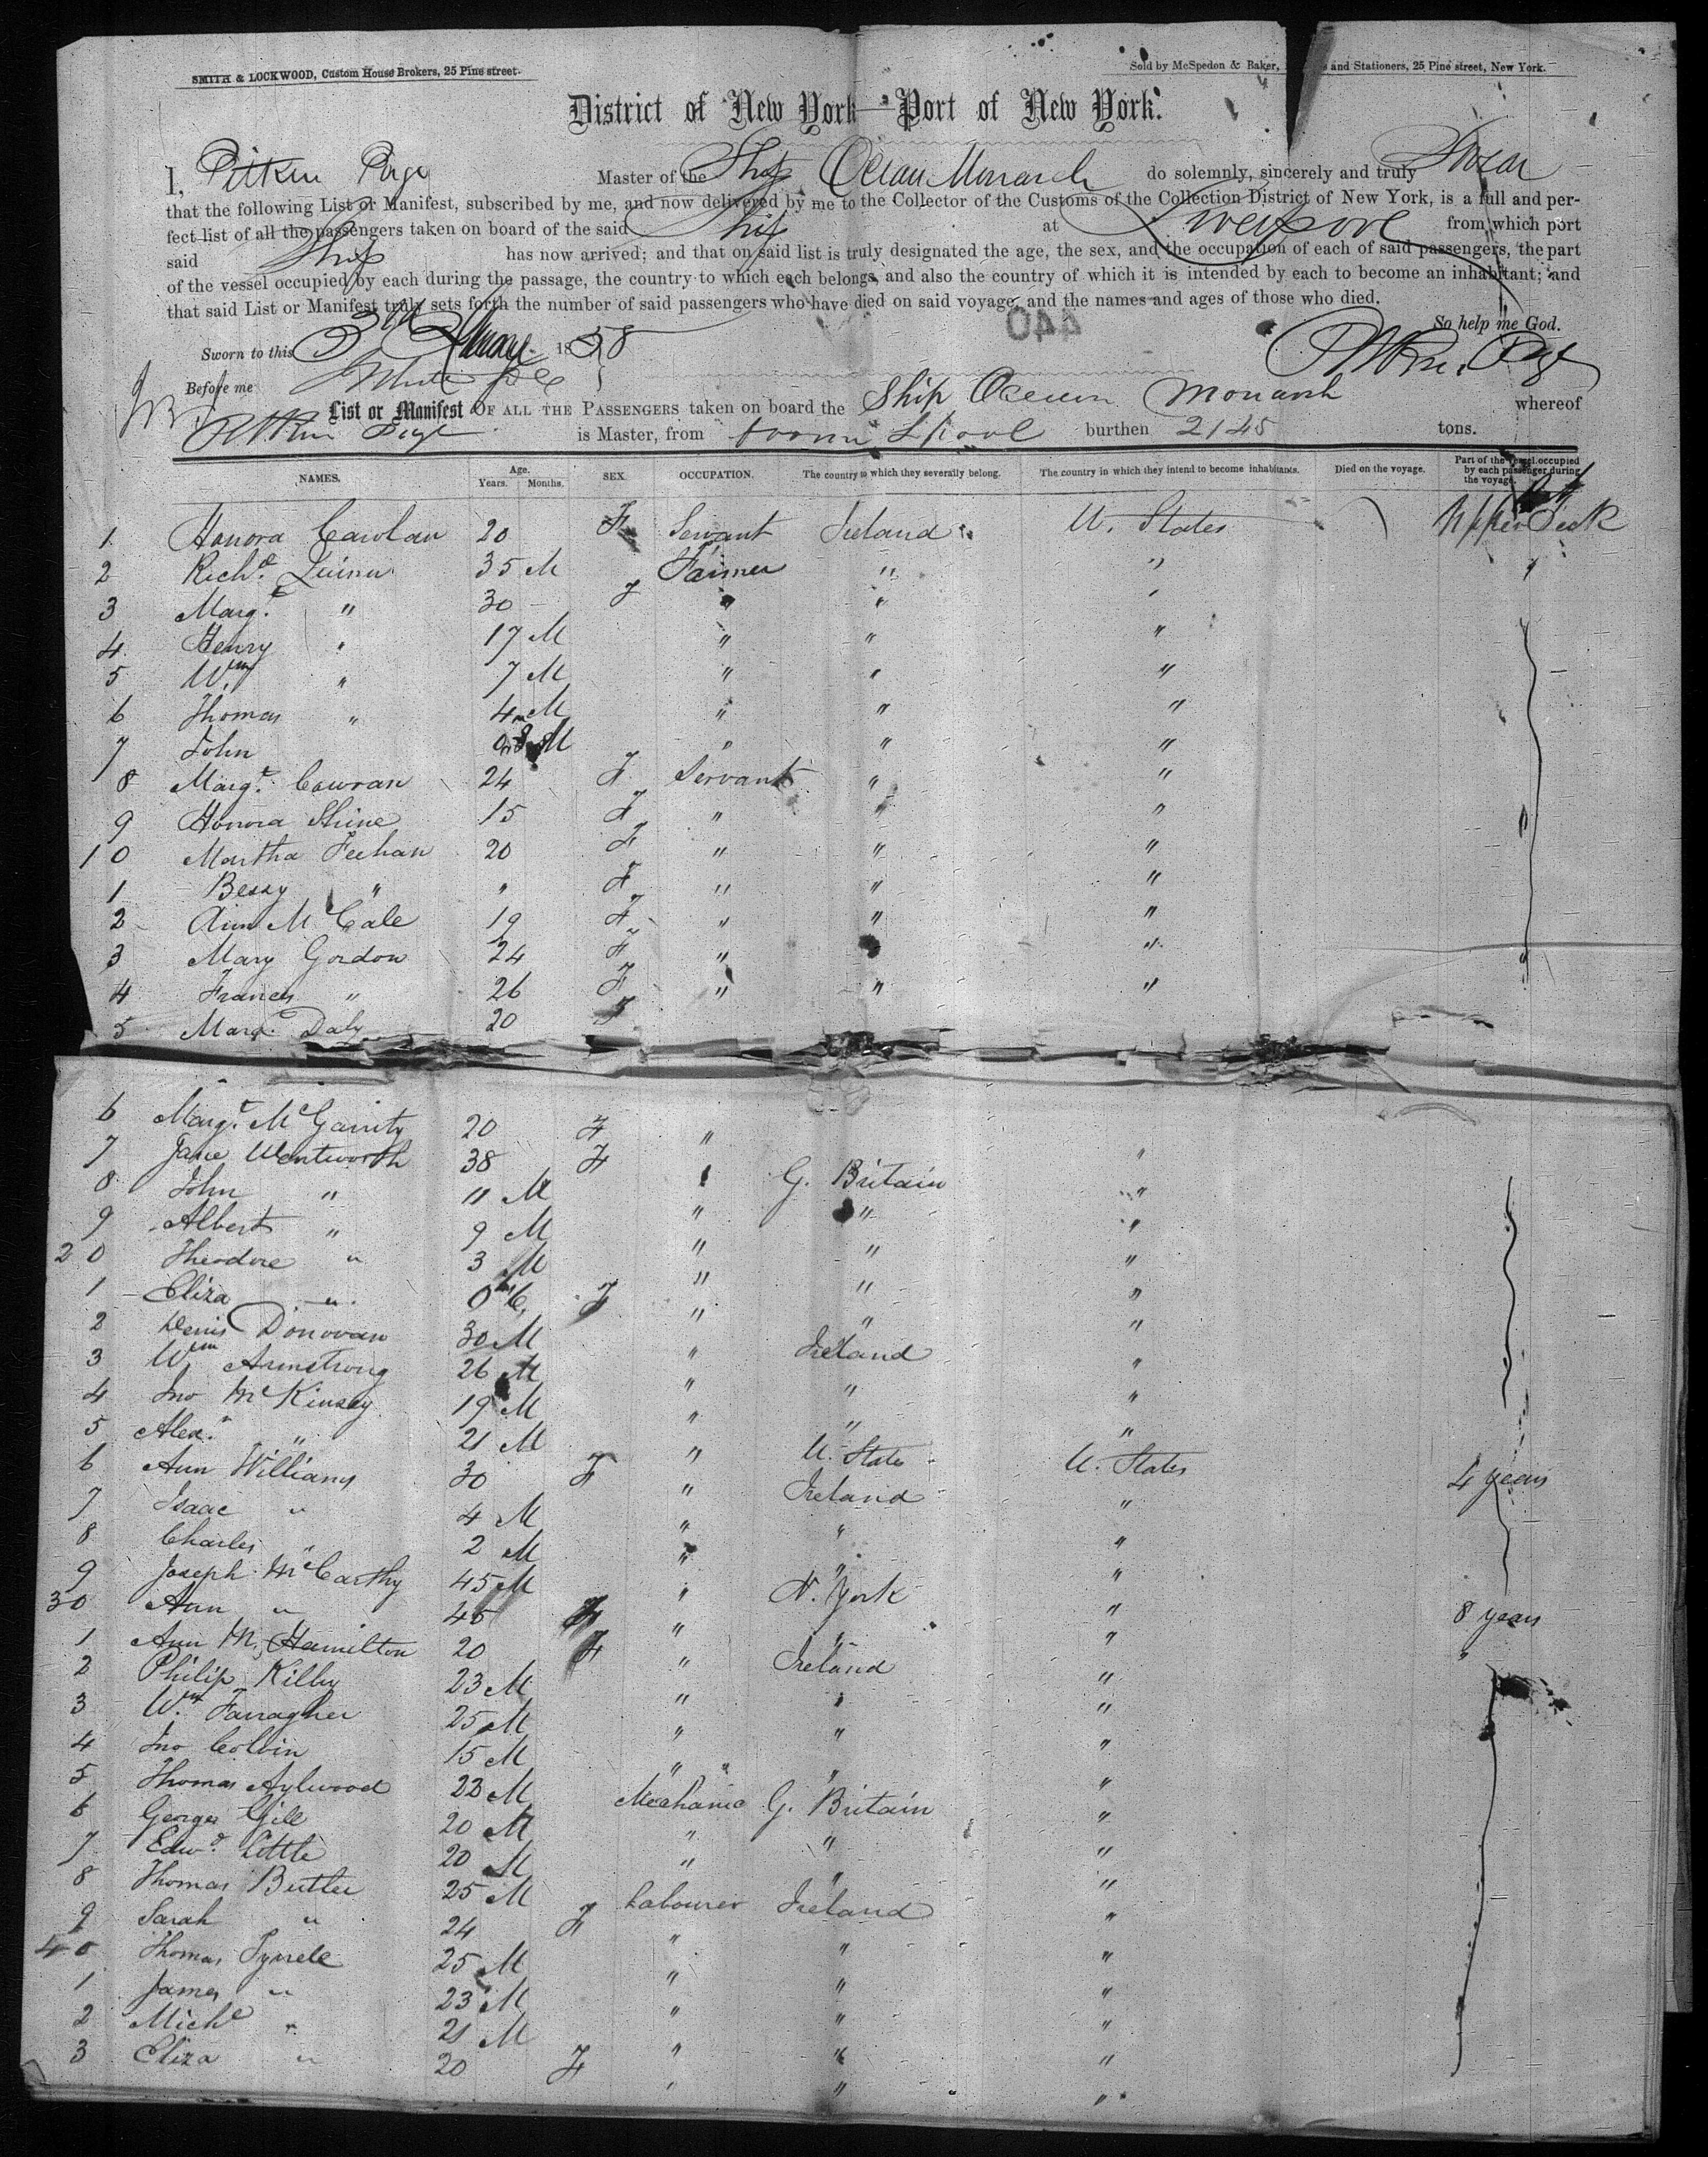 SMITH & LOCKWOOD, Custom House Brokers, 25 Pine street.
Sold by McSpedon & Baker, and Stationers, 25 Pine street, New York.
District of New York—Port of New York.
I, Pitkin Page Master of the Ship Ocean Monarch do solemnly, sincerely and truly Swear
that the following List or Manifest, subscribed by me, and now delivered by me to the Collector of the Customs of the Collection District of New York, is a full and per-
fect list of all the passengers taken on board of the said Ship at Liverpool from which port
said Ship has now arrived; and that on said list is truly designated the age, the sex, and the occupation of each of said passengers, the part
of the vessel occupied by each during the passage, the country to which each belongs, and also the country of which it is intended by each to become an inhabitant; and
that said List or Manifest truly sets forth the number of said passengers who have died on said voyage, and the names and ages of those who died.
440
So help me God.
Sworn to this 3rd 1858
Pitkin Page
Before me
List or Manifest OF ALL THE PASSENGERS taken on board the Ship Ocean Monarch whereof
Pitkin Page is Master, from L'pool burthen 2145 tons.
NAMES. Age. Years. Months. SEX. OCCUPATION. The country to which they severally belong. The country in which they intend to become inhabitants. Died on the voyage. Part of the vessel occupied by each passenger during the voyage.
1 Honora Cawlan 20 F Servant Ireland U. States Upper Deck
2 Richd. Quinn 35 M Farmer " "
3 Margt. " 30 F " " "
4 Henry " 17 M " " "
5 Wm " 7 M " " "
6 Thomas " 4 M " " "
7 John M " " "
8 Margt. Cowran 24 F Servant " "
9 Honora Shine 15 F " " "
10 Martha Feehan 20 F " " "
1 Bessy " " F " " "
2 Ann McCale 19 F " " "
3 Mary Gordon 24 F " " "
4 Frances " 26 F " " "
5 Margt. Daly 20 F
6 Margt. McGarrity 20 F "
7 Jane Wentworth 38 F " G. Britain "
8 John " 11 M " " "
9 Albert " 9 M " " "
20 Theodore " 3 M " " "
1 Eliza " 0 6 F " " "
2 Denis Donovan 30 M " Ireland "
3 Wm Armstrong 26 M " " "
4 Jno McKinsey 19 M " " "
5 Alexr. " 21 M " U. States U. States 4 years
6 Ann Williams 30 F " Ireland "
7 Isaac " 4 M " " "
8 Charles " 2 M " " "
9 Joseph McCarthy 45 M " N. York " 8 years
30 Ann " 45 F " " " "
1 Ann M. Hamilton 20 F " Ireland "
2 Philip Kilby 23 M " " "
3 Wm. Farragher 25 M " " "
4 Jno Colvin 15 M " " "
5 Thomas Aylwood 22 M Mechanic G. Britain "
6 George Gill 20 M " " "
7 Edwd. Little 20 M " " "
8 Thomas Butler 25 M Labourer Ireland "
9 Sarah " 24 F " " "
40 Thomas Tyrrele 25 M " " "
1 James " 23 M " " "
2 Michl " 21 M " " "
3 Eliza " 20 F " " "